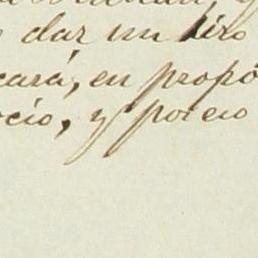 dar un tiro
cará, en propó
ocio, y por eso